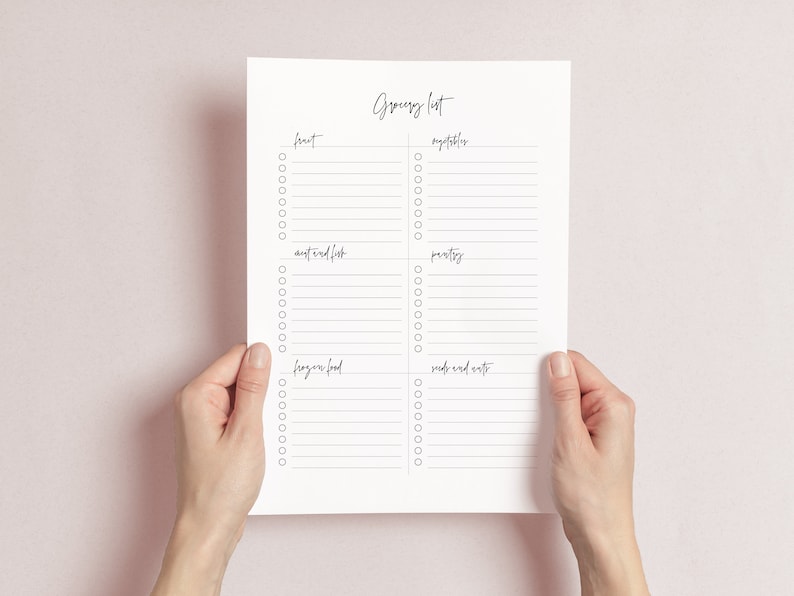 Grocery list
fruit
vegetables
meat and fish
pantry
frozen food
seeds and nuts